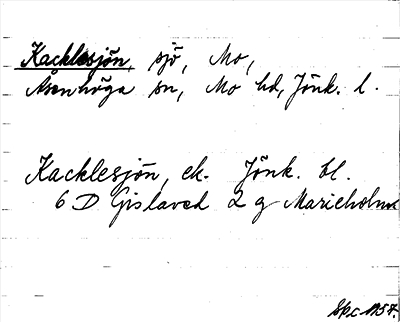 Kacklesjön, sjö, Mo,
Åsenhöga sn, Mo hd, Jönk. l.
Kacklesjön, ek. Jönk. bl.
6 D Gislaved 2 g Marieholm